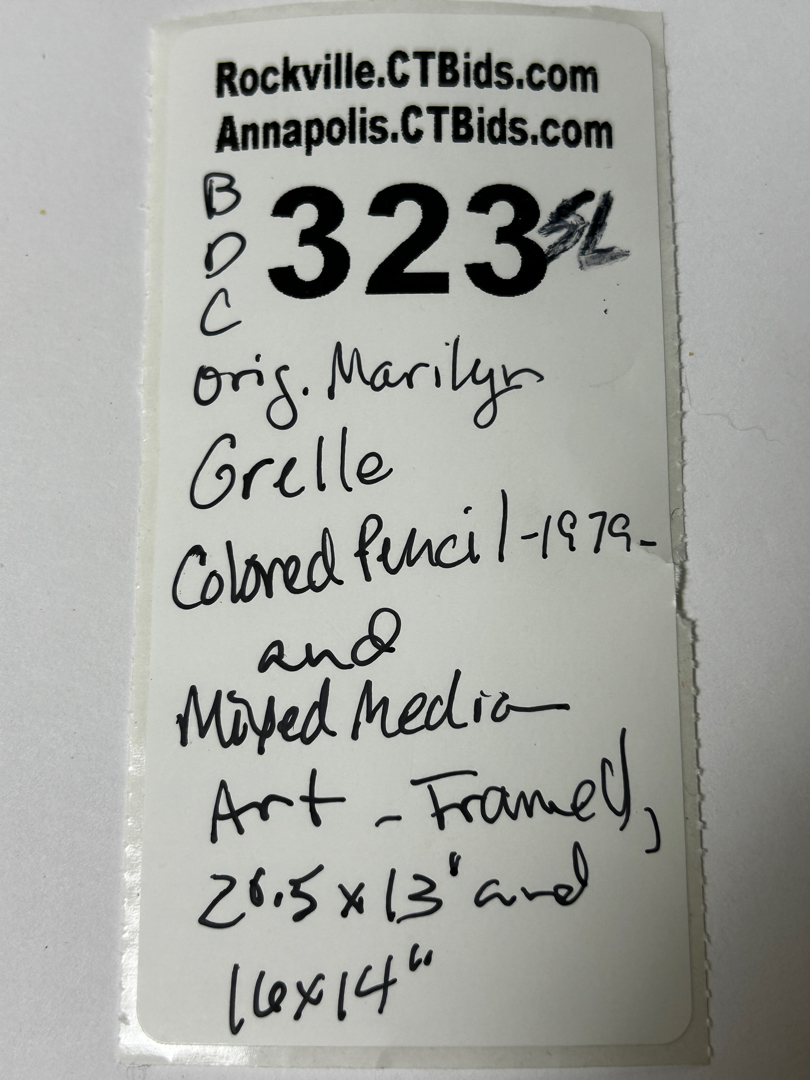 Rockville.CTBids.com
Annapolis.CTBids.com
B
D
C
323 SL
orig. Marilyn
Grelle
Colored Pencil -1979-
and
Mixed Media
Art - Framed,
x 13" and
16x14"